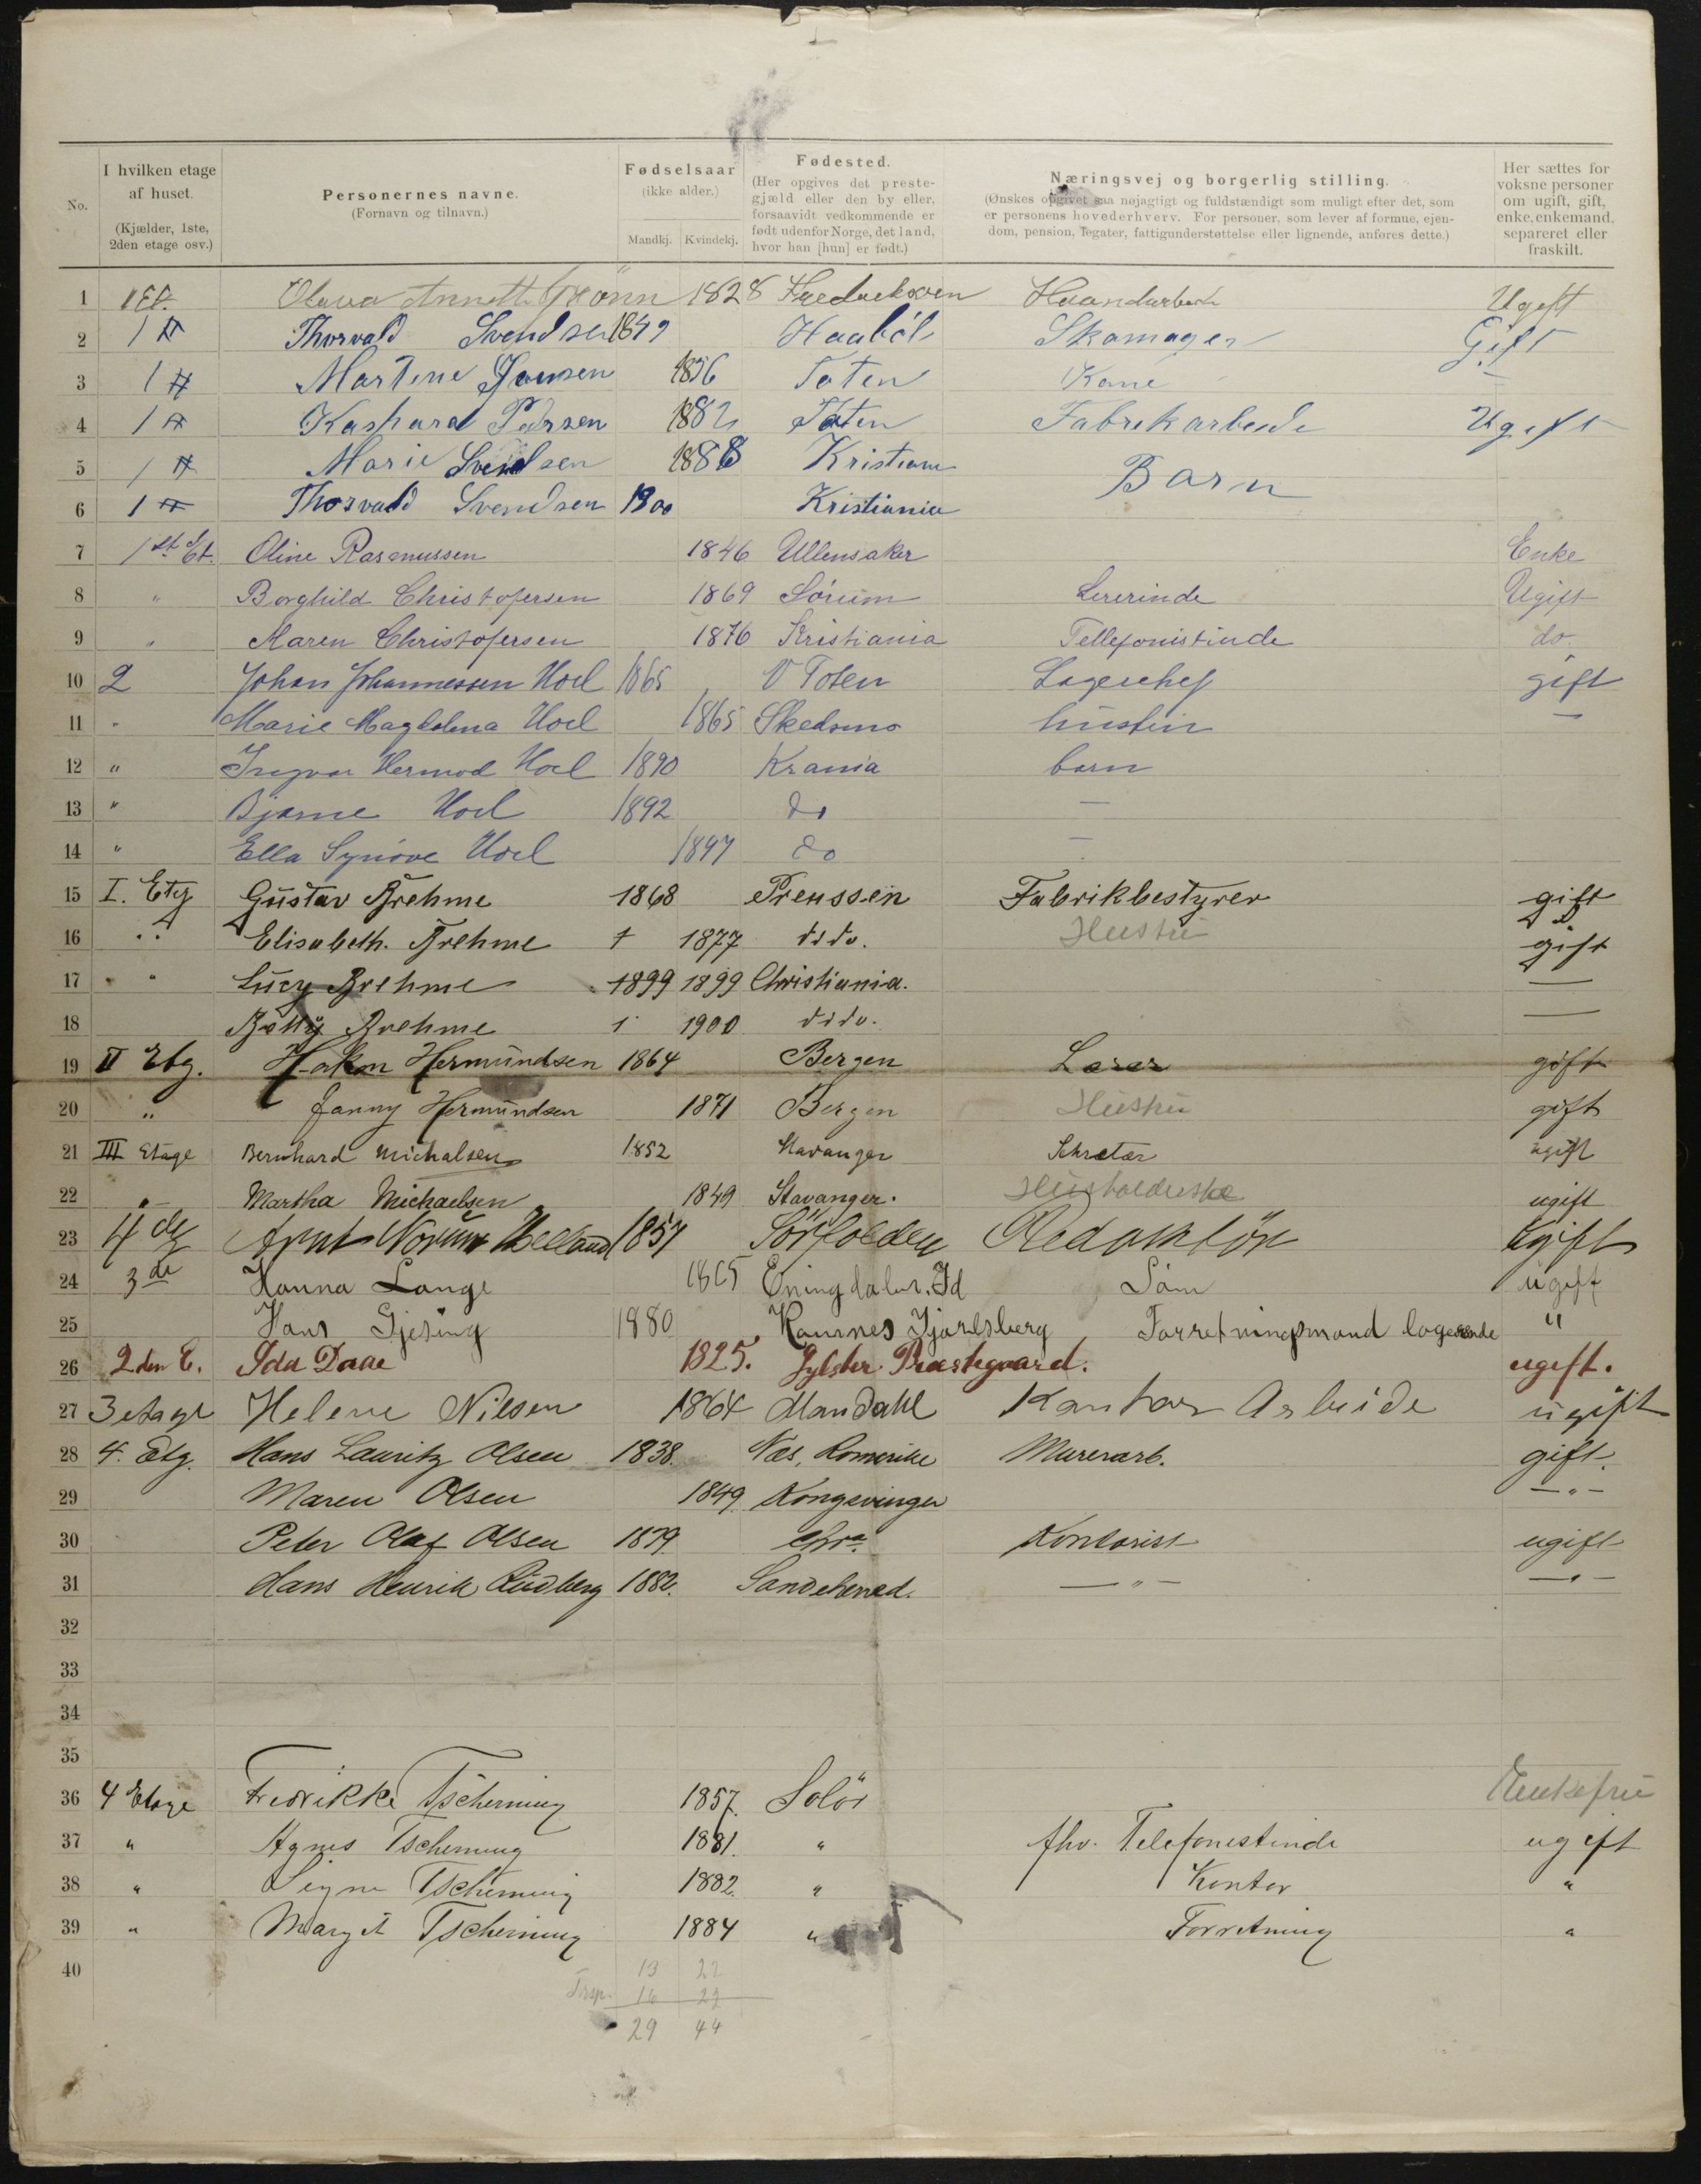 No.
I hvilken etage af huset. (Kjælder, 1ste, 2den etage osv.)
Personernes navne. (Fornavn og tilnavn.)
Fødselsaar (ikke alder.) Mandkj. Kvindekj.
Fødested. (Her opgives det prestegjæld eller den by eller, forsaavidt vedkommende er født udenfor Norge, det land, hvor han [hun] er født.)
Næringsvej og borgerlig stilling. (Ønskes opgivet saa nøjagtigt og fuldstændigt som muligt efter det, som er personens hovederhverv. For personer, som lever af formue, ejendom, pension, legater, fattigunderstøttelse eller lignende, anføres dette.)
Her sættes for voksne personer om ugift, gift, enke, enkemand, separeret eller fraskilt.
1 1 Et. 1828 Ugift
2 1 Thorvald Svendsen 1849 Haabøl Skomager Gift
3 1 Martine Jonsen 1856 Toten Kone —
4 1 Kaspara Parsen 1882 Toten Fabrekarbeide Ugeft
5 1 Marie Svendsen 1888 Kristiania Barn
6 1 Thorvald Svendsen 1900 Kristiania
7 1st Et. Oline Rasmussen 1846 Ullensaker Enke
8 " Borghild Christofersen 1869 Sørum Lererinde Ugift
9 " Karen Christofersen 1876 Kristiania Tellefonistinde do.
10 2 Johan Johannessen Hoel 1865 V Toten Lagerchef gift
11 " Marie Magdalena Hoel 1865 Skedsmo hustru —
12 " Ingvar Hermod Hoel 1890 Krania barn
13 " Bjarne Hoel 1892 do —
14 " Ella Synøve Hoel 1897 do —
15 I. Etg Gustav Brehme 1868 Preussen Fabrikbestyrer gift
16 " Elisabeth. Brehme 1 1877 dido. Hustru gift
17 " Lucy Brehme 1899 1899 Christiania. —
18 Betty Brehme 1 1900 dido. —
19 II Etg. Hakon Hermundsen 1864 Bergen Lærer gift
20 " Fanny Hermundsen 1871 Bergen Hustru gift
21 III Etage Bernhard Michalsen 1852 Stavanger Sekretær ugift
22 " Martha Michaelsen 1849 Stavanger. ugift
23 4de Arnt Norum Helland 1857 Sørfolden Redaktør Ugift
24 3de Hanna Lange Eningdalen. Id ugift
25 Hans Gjesing 1880 Ramnes Jjarlsberg Forretningsmand logerende "
26 2den E. Ida Daae 1825. Jylster Præstegaard. ugift.
27 3 etage Helene Nilsen 1864 Mandahl Kantor Arbeide ugift
28 4. Etg. Hans Lauritz Olsen 1838. Næs, Romerike Murerarb. gift.
29 Maren Olsen 1849. Kongsvinger — " —
30 Peter Olaf Olsen 1879. Chra. Kontorist ugift
31 Hans Henrik Rudberg 1882. Sandeherred. — " — — " —
32
33
34
35
36 4 Etage Fredrikke Tscherning 1857. Solør Enkefru
37 " Agnes Tscherning 1881. " fhv. Telefonistinde ugift
38 " Signe Tscherning 1882. " Kontor "
39 " Margit Tscherning 1884 " Forretning "
40
13 22
16 22
29 44